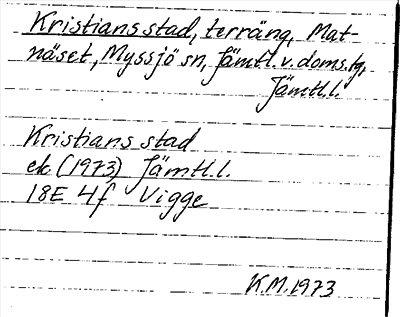 Kristians stad, terräng, Mat-
näset, Myssjö sn, Jämtl. v. doms.g,
Jämtl.l.
Kristians stad
ek (1973) Jämtl.l.
18E 4f Vigge
K.M. 1973